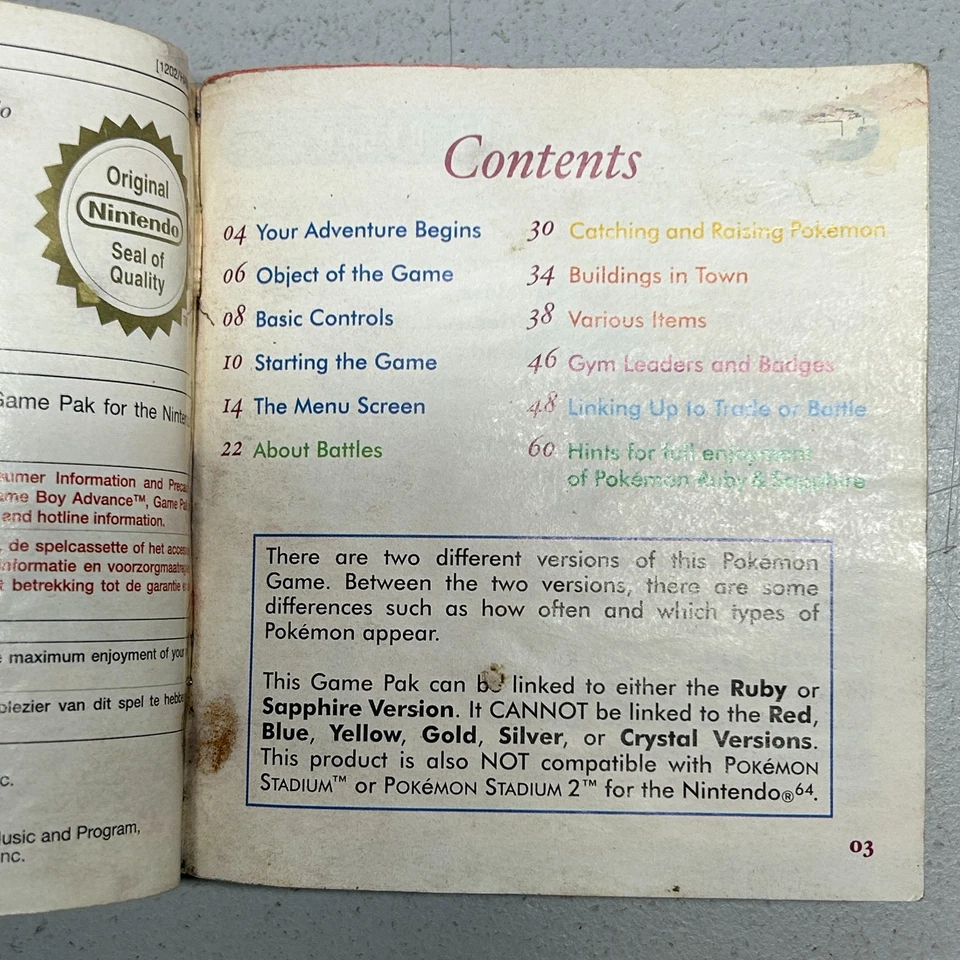 [1202/
Original
Nintendo
Seal of
Quality
Game Pak for the
Information and
Boy Advance™, Game
and hotline information.
de spelcassette of het
informatie en
betrekking tot de garantie
maximum enjoyment of your
plezier van dit spel te
Music and Program,
Contents
04 Your Adventure Begins
06 Object of the Game
08 Basic Controls
10 Starting the Game
14 The Menu Screen
22 About Battles
30 Catching and Raising Pokémon
34 Buildings in Town
38 Various Items
46 Gym Leaders and Badges
48 Linking Up to Trade or Battle
60 Hints for full enjoyment
of Pokémon Ruby & Sapphire
There are two different versions of this Pokémon
Game. Between the two versions, there are some
differences such as how often and which types of
Pokémon appear.
This Game Pak can be linked to either the Ruby or
Sapphire Version. It CANNOT be linked to the Red,
Blue, Yellow, Gold, Silver, or Crystal Versions.
This product is also NOT compatible with POKéMON
STADIUM™ or POKéMON STADIUM 2™ for the Nintendo®64.
03